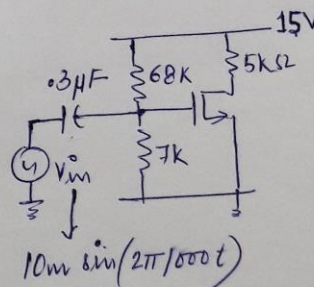 15V
.3μF
68K
5KΩ
7K
Vin
10m sin(2π1000t)